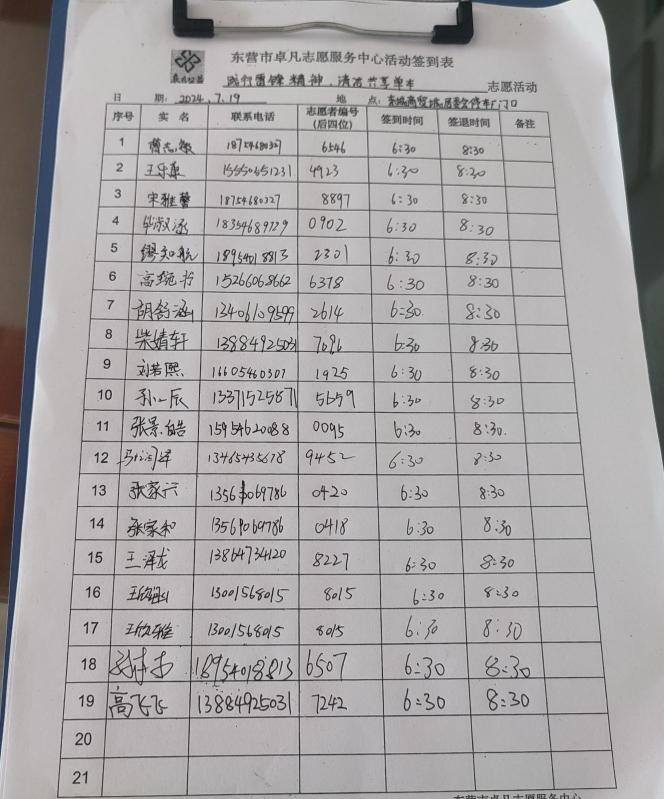 东营市卓凡志愿服务中心活动签到表
践行雷锋精神,清洁共享单车 志愿活动
日 期: 2024.7.19 地 点:
序号 实 名 联系电话 志愿者编号(后四位) 签到时间 签退时间 备注
1 18754680327 6546 6:30 8:30
2 王乐康 15550651231 4923 6:30 8:30
3 宋雅馨 18754680327 8897 6:30 8:30
4 毕淑涵 18354689729 0902 6:30 8:30
5 缪知航 18954018813 2301 6:30 8:30
6 高绕书 15266068662 6378 6:30 8:30
7 胡舒涵 13406109599 2614 6:30 8:30
8 柴婧轩 13884925031 7696 6:30 8:30
9 刘若熙 16605460307 1925 6:30 8:30
10 孙一辰 13371525871 5659 6:30 8:30
11 张景皓 15954620088 0095 6:30 8:30
12 13465435678 9452 6:30 8:30
13 张家六 13561069786 0420 6:30 8:30
14 张家和 13561069786 0418 6:30 8:30
15 王泽龙 13864734120 8227 6:30 8:30
16 13001568015 8015 6:30 8:30
17 王欣雅 13001568015 8015 6:30 8:30
18 18954018813 6507 6:30 8:30
19 高飞飞 13884925031 7242 6:30 8:30
20
21
东营市卓凡志愿服务中心